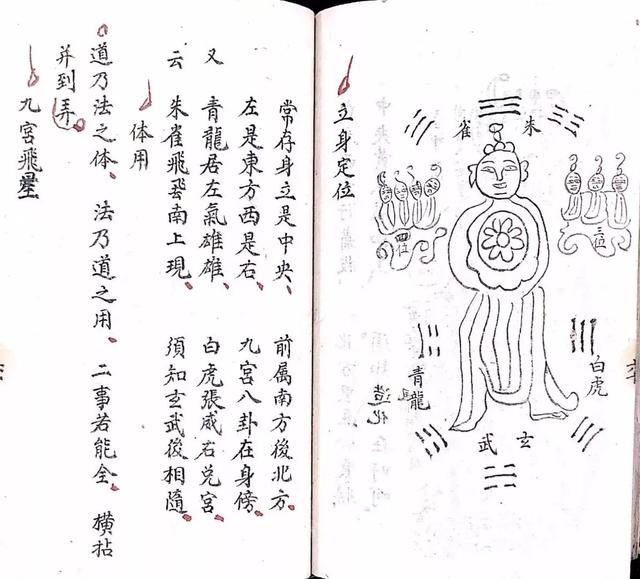 朱雀
三位
四位
白虎
青龍
玄武
造化
立身定位
常存身立是中央 前属南方後北方
左是東方西是右 九宮八卦在身傍
又 青龍居左氣雄雄 白虎張威右兑宮
云 朱雀飛飛南上現 須知玄武後相隨
体用
道乃法之体 法乃道之用 二事若能全 橫拈
并到弄
九宮飛星